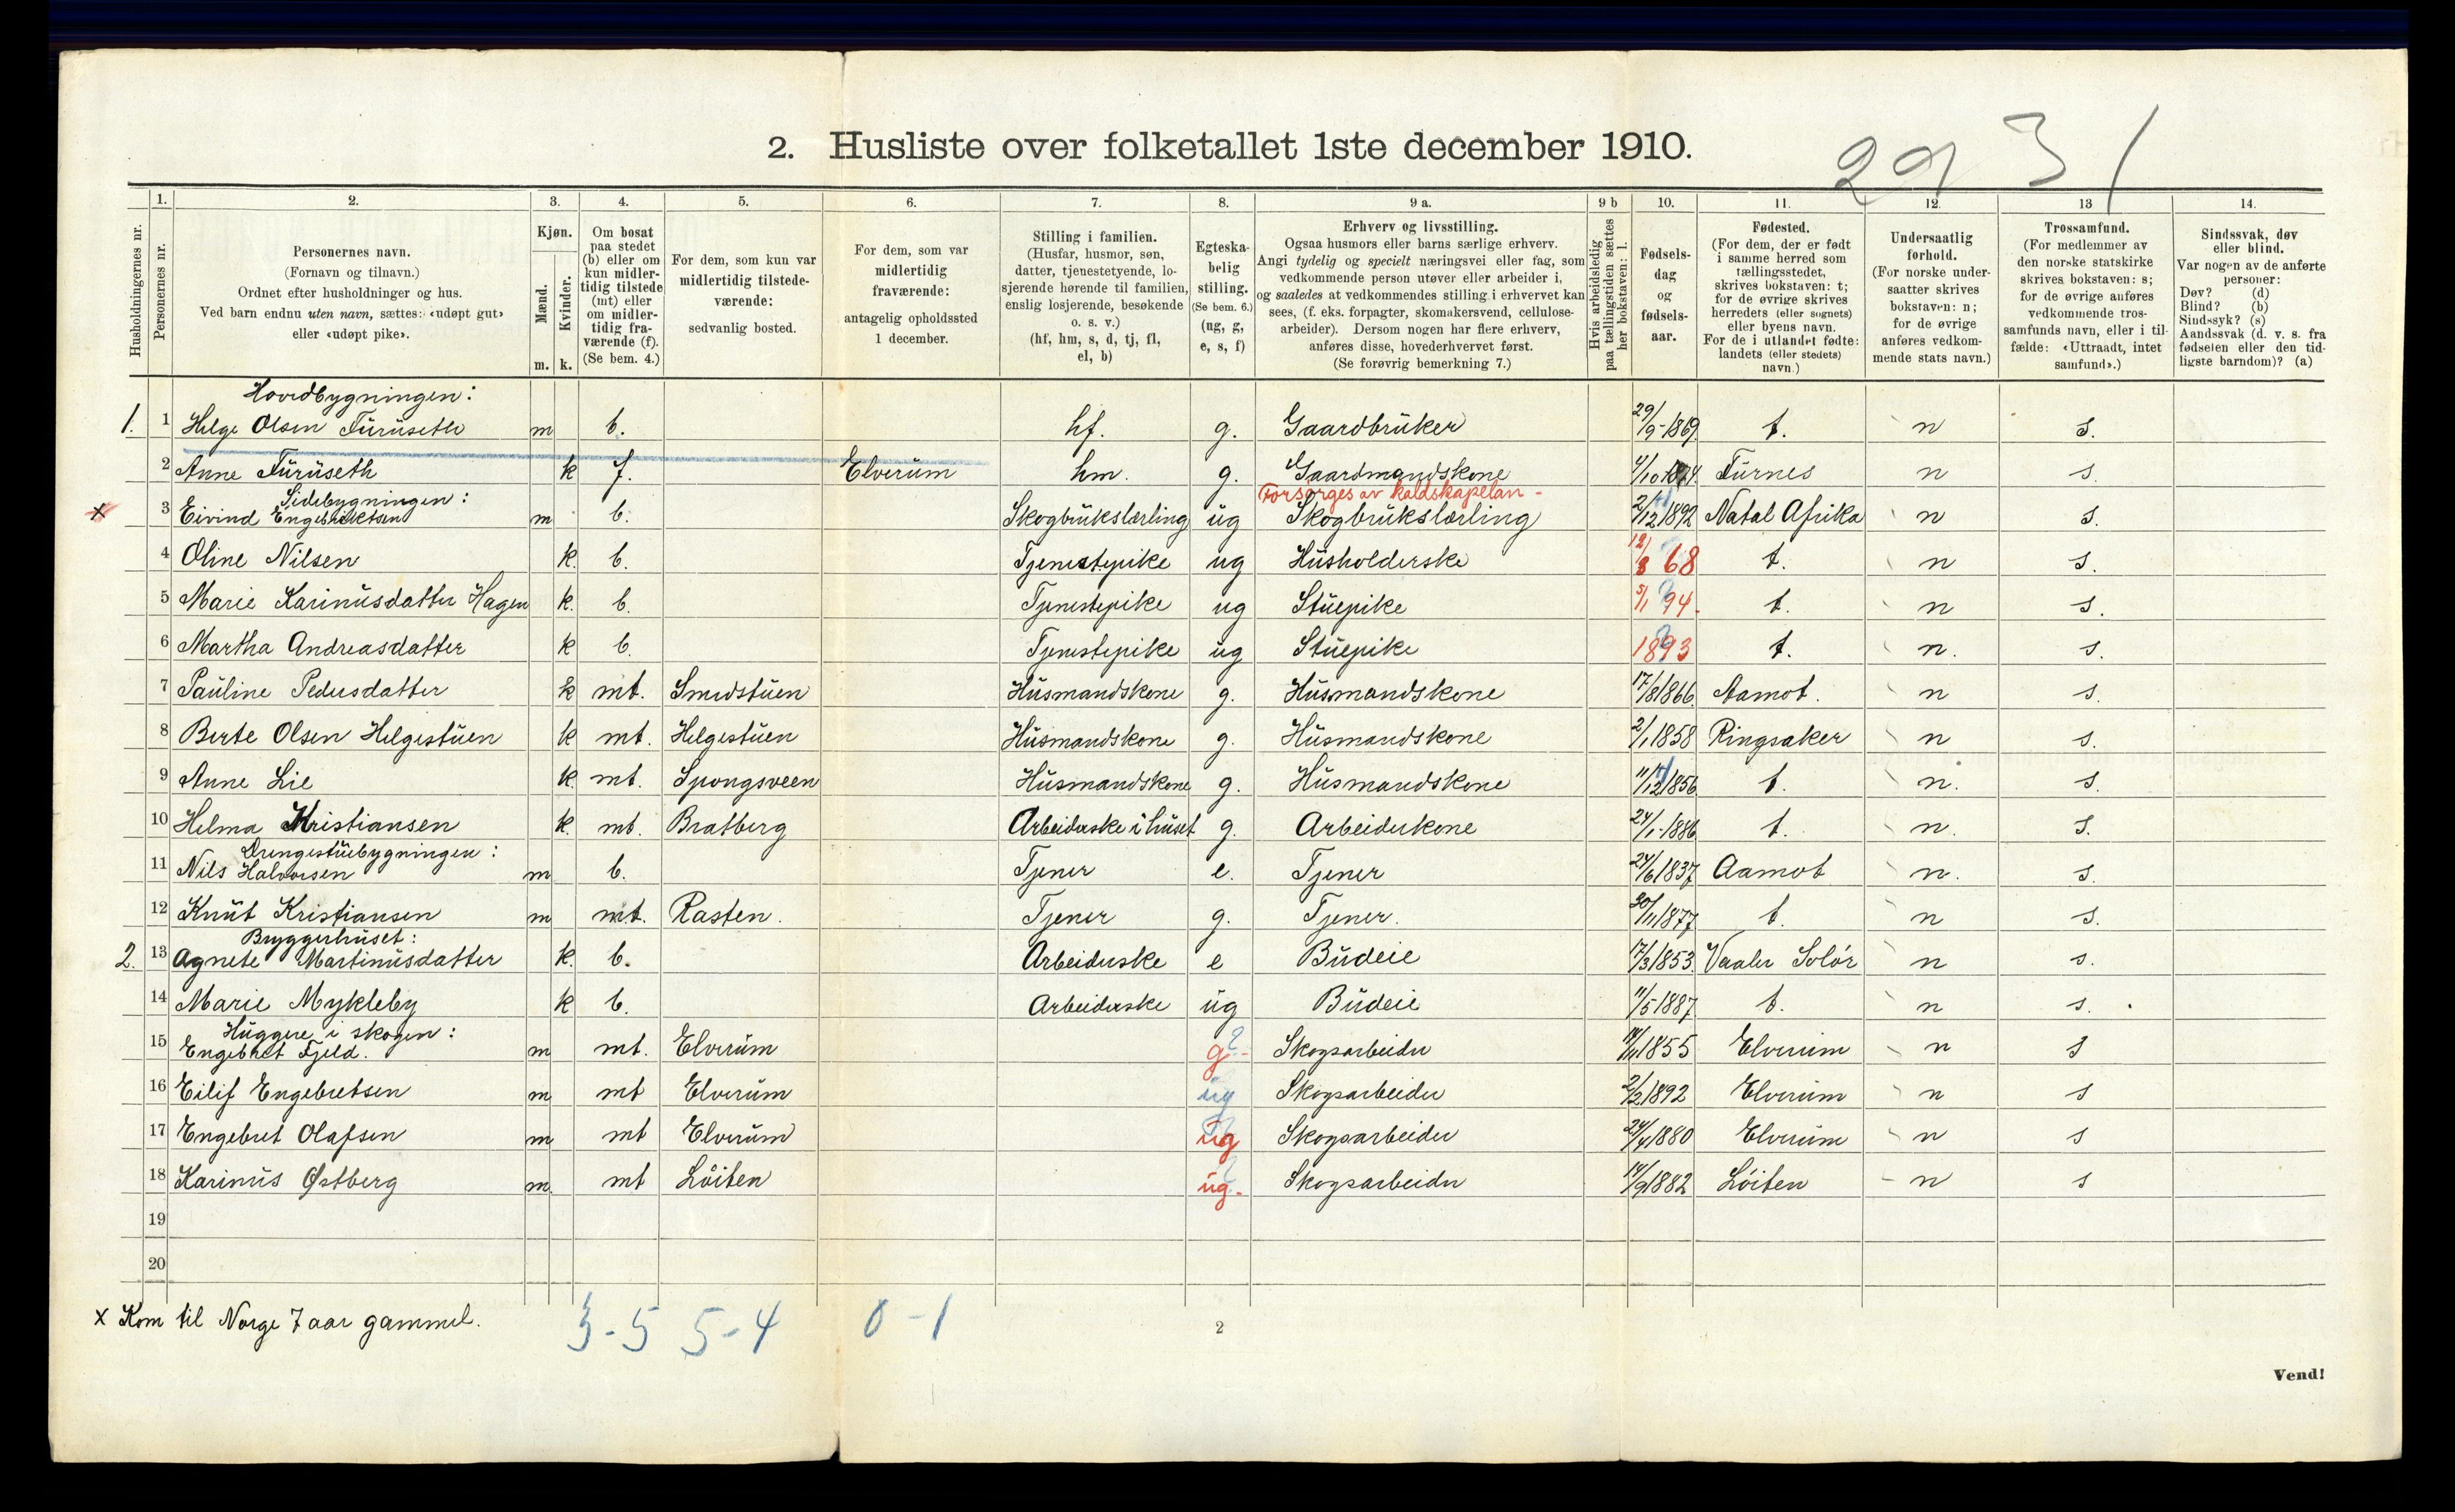 2. Husliste over folketallet 1ste december 1910.
29 3 /
1. 2. 3. 4. 5. 6. 7. 8. 9 a. 9 b 10. 11. 12. 13 14.
Husholdningernes nr.
Personernes nr.
Personernes navn.
(Fornavn og tilnavn.)
Ordnet efter husholdninger og hus.
Ved barn endnu uten navn, sættes: «udøpt gut»
eller «udøpt pike».
Kjøn.
Mænd.
Kvinder.
m. k.
Om bosat
paa stedet
(b) eller om
kun midler-
tidig tilstede
(mt) eller
om midler-
tidig fra-
værende (f).
(Se bem. 4.)
For dem, som kun var
midlertidig tilstede-
værende:
sedvanlig bosted.
For dem, som var
midlertidig
fraværende:
antagelig opholdssted
1 december.
Stilling i familien.
(Husfar, husmor, søn,
datter, tjenestetyende, lo-
sjerende hørende til familien,
enslig losjerende, besøkende
o. s. v.)
(hf, hm, s, d, tj, fl,
el, b)
Egteska-
belig
stilling.
(Se bem. 6.)
(ug, g,
e, s, f)
Erhverv og livsstilling.
Ogsaa husmors eller barns særlige erhverv.
Angi tydelig og specielt næringsvei eller fag, som
vedkommende person utøver eller arbeider i,
og saaledes at vedkommendes stilling i erhvervet kan
sees, (f. eks. forpagter, skomakersvend, cellulose-
arbeider). Dersom nogen har flere erhverv,
anføres disse, hovederhvervet først.
(Se forøvrig bemerkning 7.)
Hvis arbeidsledig
paa tællingstiden sættes
her bokstaven: l.
Fødsels-
dag
og
fødsels-
aar.
Fødested.
(For dem, der er født
i samme herred som
tællingsstedet,
skrives bokstaven: t;
for de øvrige skrives
herredets (eller sognets)
eller byens navn.
For de i utlandet fødte:
landets (eller stedets)
navn.)
Undersaatlig
forhold.
(For norske under-
saatter skrives
bokstaven: n;
for de øvrige
anføres vedkom-
mende stats navn.)
Trossamfund.
(For medlemmer av
den norske statskirke
skrives bokstaven: s;
for de øvrige anføres
vedkommende tros-
samfunds navn, eller i til-
fælde: «Uttraadt, intet
samfund».)
Sindssvak, døv
eller blind.
Var nogen av de anførte
personer:
Døv? (d)
Blind? (b)
Sindssyk? (s)
Aandssvak (d. v. s. fra
fødselen eller den tid-
ligste barndom)? (a)
Hovedbygningen:
1. 1 Helge Olsen Furuseth m b. hf. g. Gaardbruker 29/9-1869. t. n s.
2 Anne Furuseth k f. Elverum hm. g. Gaardmandskone 4/10 Furnes n s.
Sidebygningen: Forsørges av kaldskapelan -
x 3 Eivind Engebretsen m b. Skogbrukslærling ug Skogbrukslærling 2/12 1892 Natal Afrika n s.
4 Oline Nilsen k. b. Tjenestepike ug Husholderske 12/8 68 t. n s.
5 Marie Karinusdatter Hagen k. b. Tjenestepike ug Stuepike 5/1 94. t. n s.
6 Martha Andreasdatter k b. Tjenestepike ug Stuepike 1893 t. n. s.
7 Pauline Pedersdatter k mt. Smedstuen Husmandskone g. Husmandskone 17/8 1866 Aamot. n s.
8 Berte Olsen Helgestuen k mt. Helgestuen Husmandskone g. Husmandskone 2/1 1858 Ringsaker n s.
9 Anne Lie k. mt. Spongsveen Husmandskone g. Husmandskone 11/12 1856 t. n. s.
10 Helma Kristiansen k. mt. Bratberg Arbeiderske i huset g. Arbeiderkone 24/1-1886 t. n. s.
Drengestuebygningen:
11 Nils Halvorsen m b. Tjener e. Tjener 24/6 1837 Aamot n. s.
12 Knut Kristiansen m mt. Rasten. Tjener g. Tjener. 30/11 1877 t. n s.
Bryggerhuset:
2. 13 Agnete Martinusdatter k. b. Arbeiderske e Budeie 17/3 1853. Vaaler Solør n s.
14 Marie Mykleby k b. Arbeiderske ug Budeie 11/5 1887 t. n s.
Huggere i skogen:
15 Engebret Fjeld. m mt. Elverum g - Skogsarbeider 1855 Elverum n s
16 Eilif Engebretsen m mt Elverum ug Skogsarbeider 2/2 1892 Elverum n s
17 Engebret Olafsen m mt Elverum ug Skogsarbeider 24/4 1880 Elverum n s
18 Karinus Østberg m. mt Løiten ug. Skogsarbeider 14/9 1882 Løiten n s
19
20
x Kom til Norge 7 aar gammel. 3-5 5-4 0-1
2
Vend!